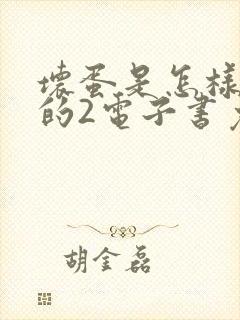 壞蛋是怎樣
的2電子書
胡金磊